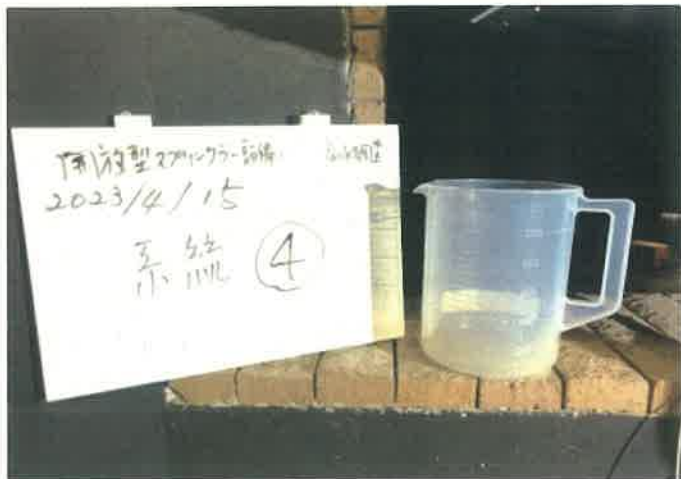 開放型スプリンクラー設備
2023/4/15
系統 ④